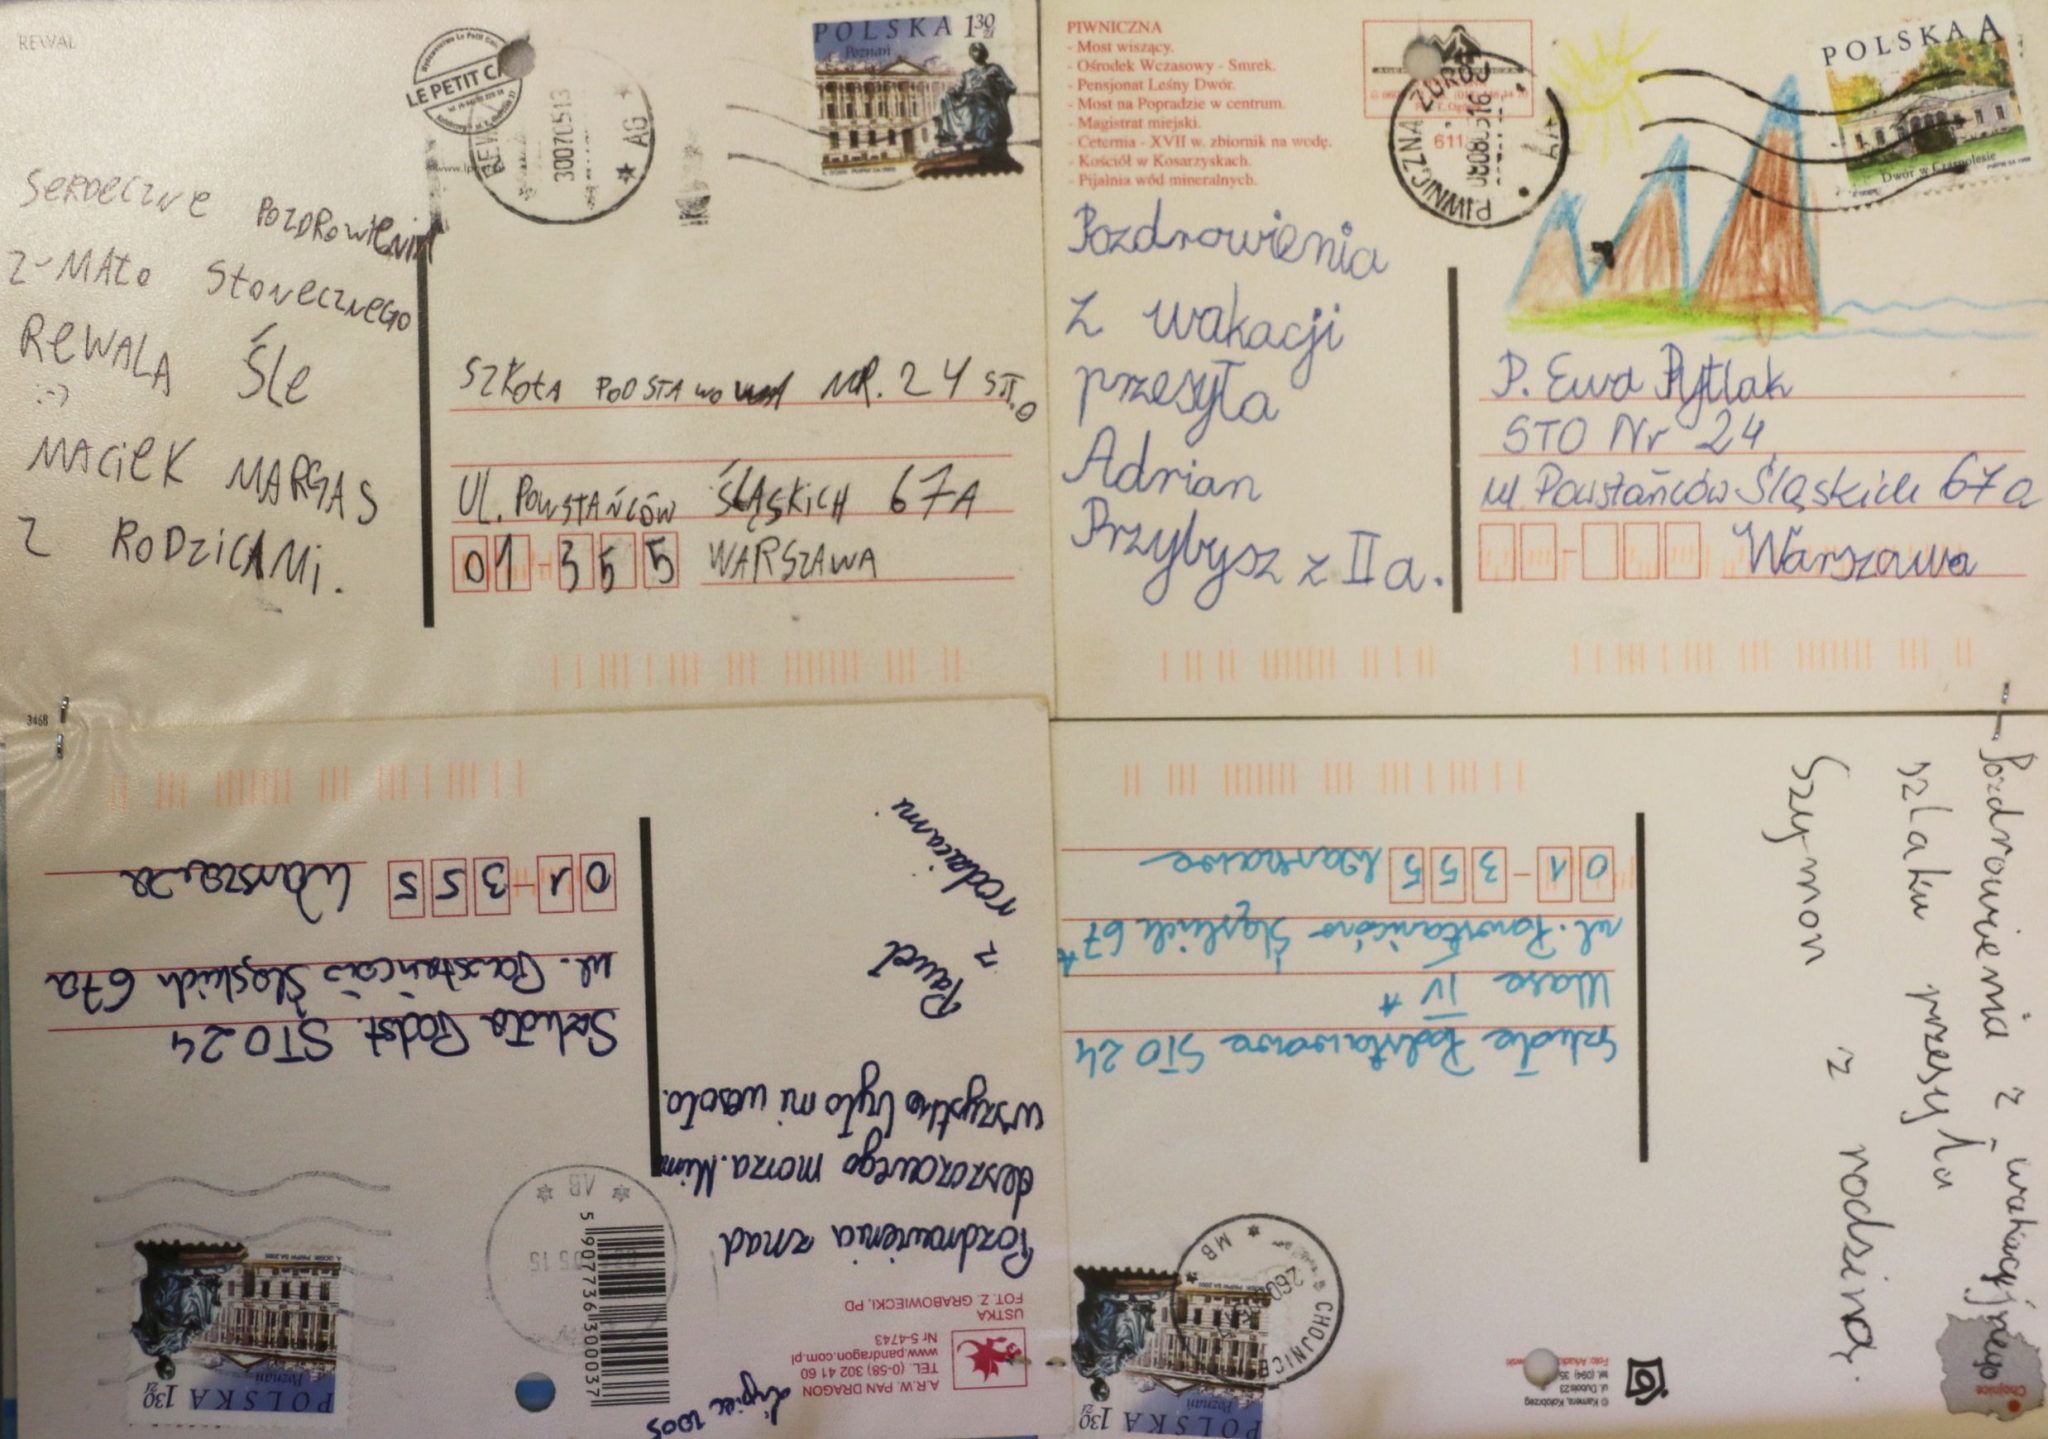 REWAL
LE PETIT CA
REWA
300705 13
AG
POLSKA 1 30 zł
Poznań
SERDECZNE POZDROWIENIA
Z-MAŁO SŁONECZNEGO
REWALA ŚLE
:-)
MACIEK MARGAS
Z RODZICAMI.
SZKOŁA PODSTAWOWA NR. 24 ST.O
UL. POWSTAŃCÓW ŚLĄSKICH 67A
01-355 WARSZAWA
3468
PIWNICZNA
- Most wiszący.
- Ośrodek Wczasowy - Smrek.
- Pensjonat Leśny Dwór.
- Most na Popradzie w centrum.
- Magistrat miejski.
- Ceternia - XVII w. zbiornik na wodę.
- Kościół w Kosarzyskach.
- Pijalnia wód mineralnych.
611
PIWNICZNA ZDRÓJ
POLSKA A
Dwór w Czarnolesie
Pozdrowienia
z wakacji
przesyła
Adrian
Przybysz z IIa.
P. Ewa Pytlak
STO Nr 24
ul Powstańców Śląskich 67a
Warszawa
lipiec 2005
A.R.W. PAN DRAGON
TEL. (0-58) 302 41 60
www.pandragon.com.pl
Nr 5-4743
USTKA
FOT. Z. GRABOWIECKI, PD
Pozdrowienia znad
deszczowego morza. Mimo
wszystko było mi wesoło.
Paweł
z
rodzicami
5 907736 300037
AB
POLSKA 1 30 zł
Poznań
Szkoła Podst. STO 24
ul. Powstańców Śląskich 67a
01-355 Warszawa
Chojnice
© Kamera, Kołobrzeg
ul. Dubois 23
Pozdrowienia z wakacyjnego
szlaku przesyła
Szymon z rodziną.
CHOJNICE
MB
POLSKA 1 30 zł
Poznań
Szkoła Podstawowa STO 24
klasa IV A
ul. Powstańców Śląskich 67A
01-355 Warszawa